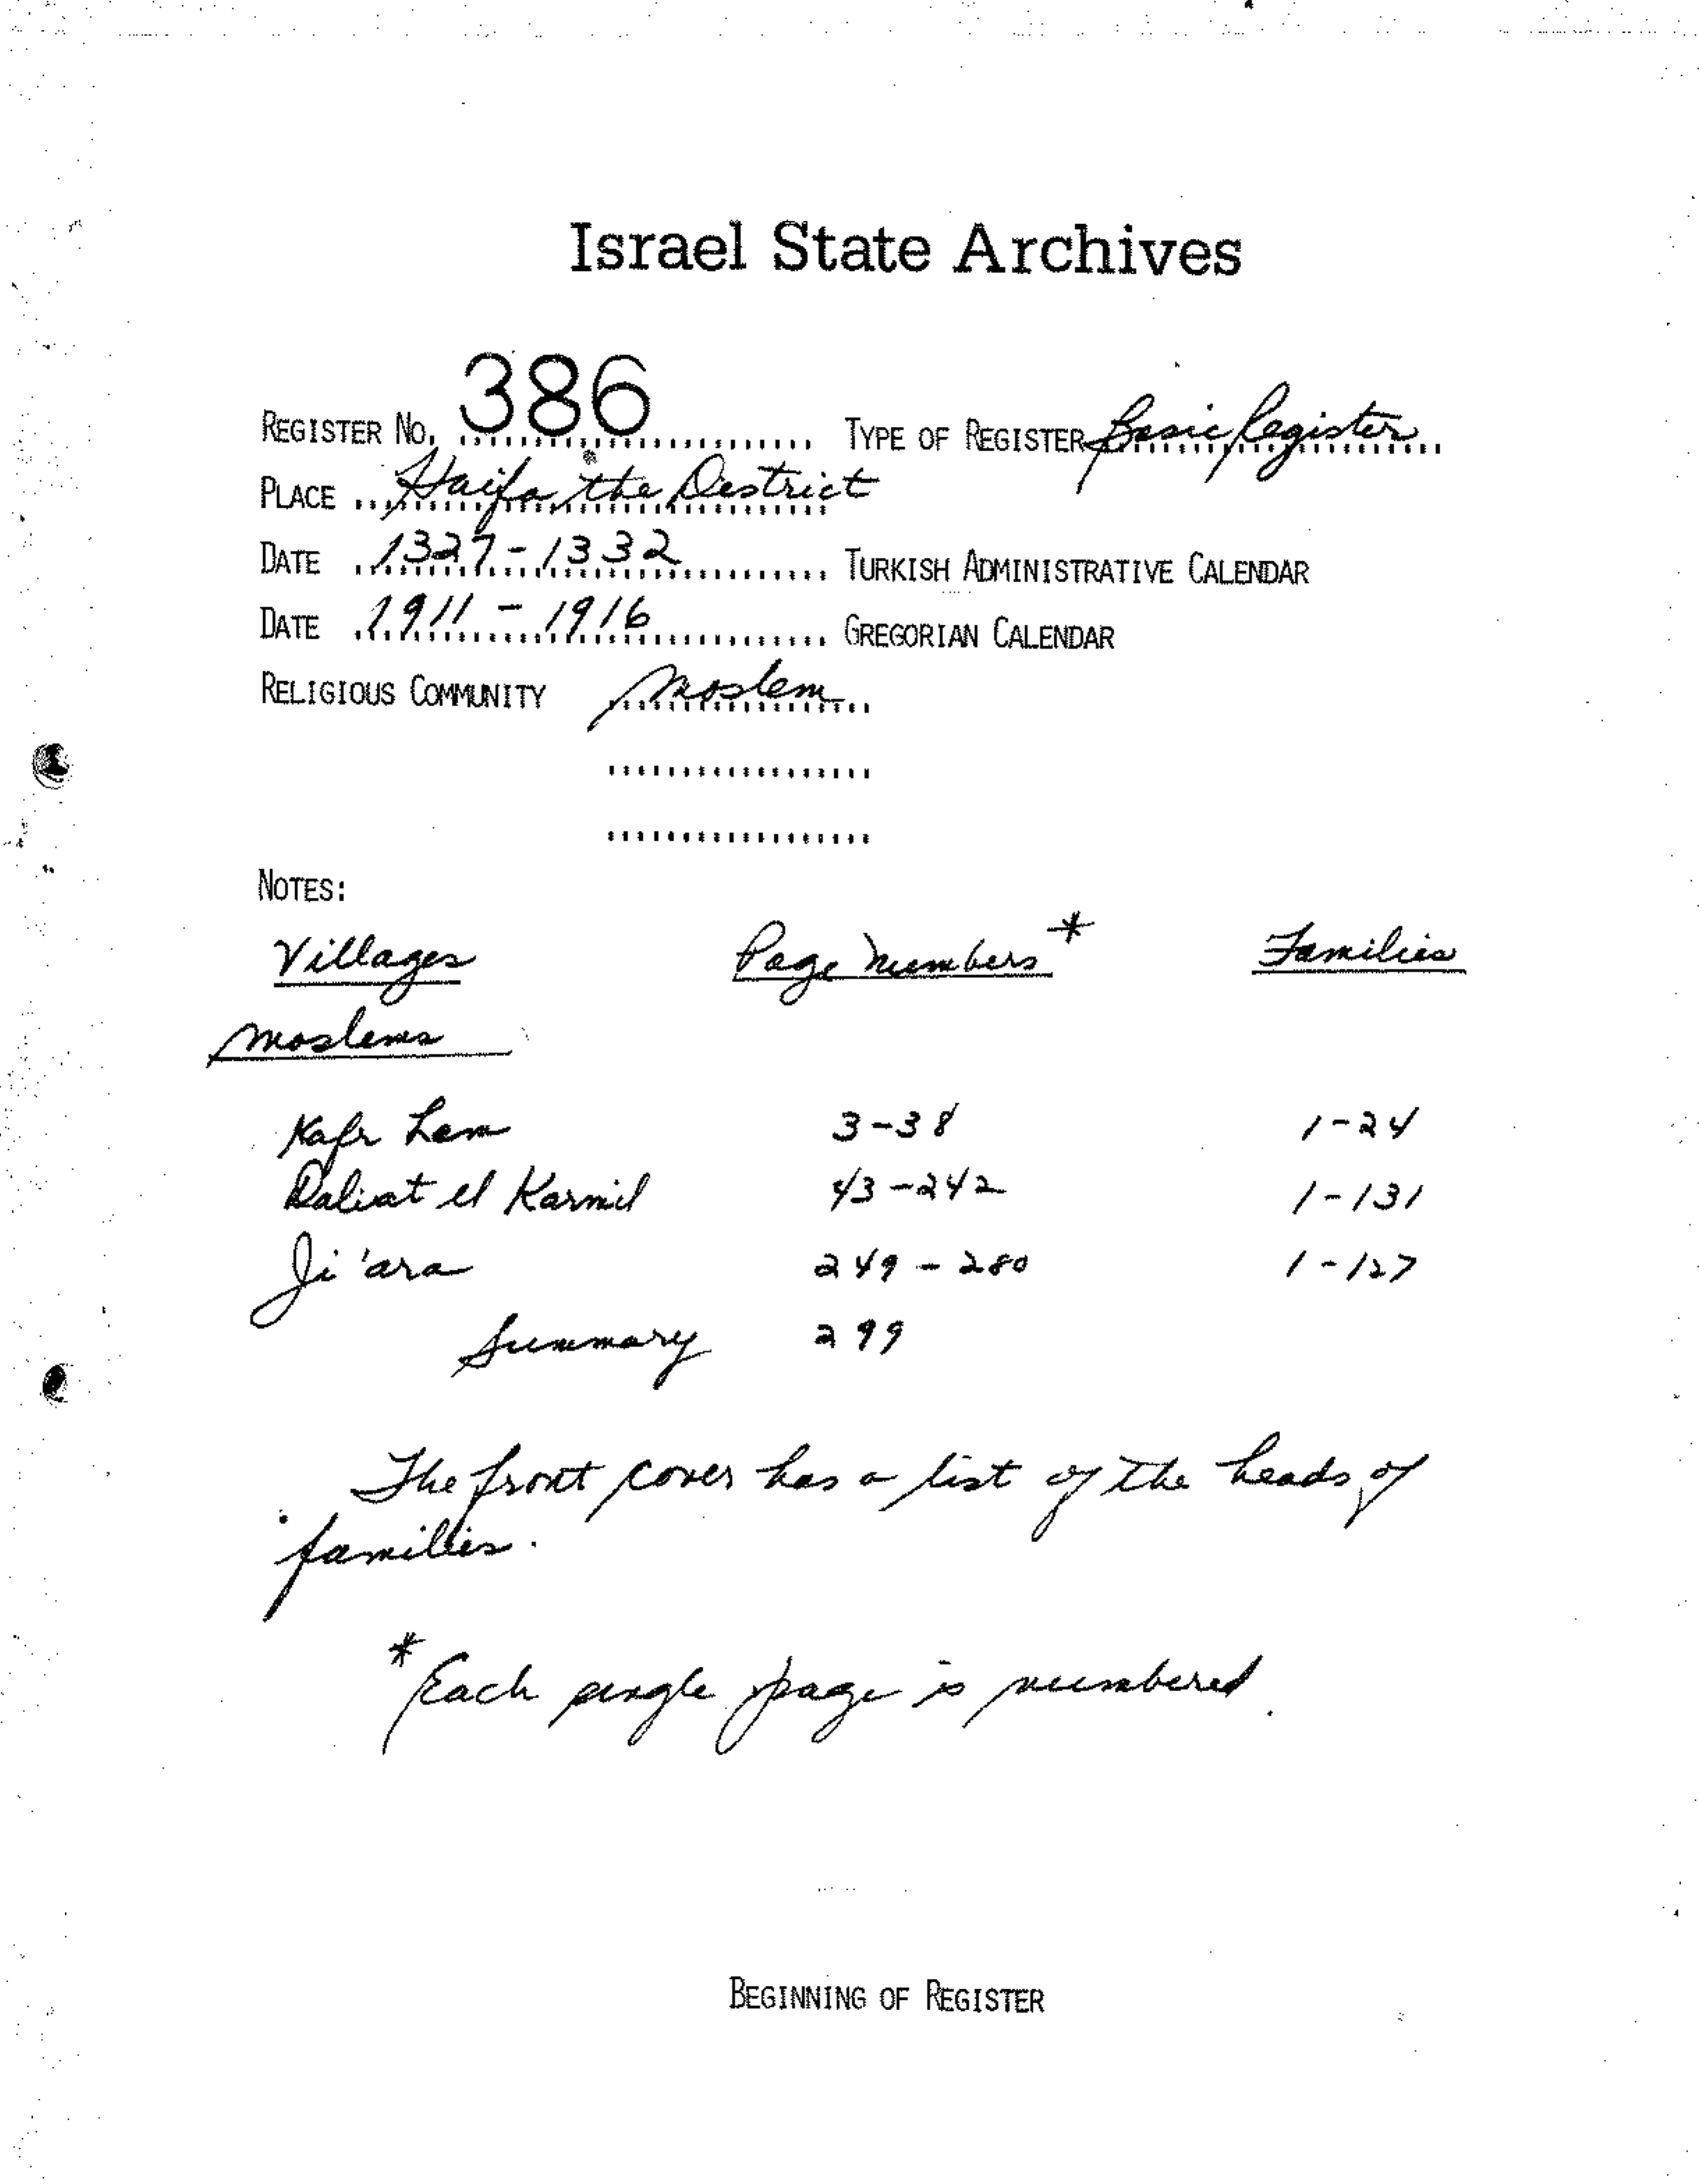 Israel State Archives
REGISTER NO. 386 TYPE OF REGISTER Basic Register
PLACE Haifa the District
DATE 1327-1332 TURKISH ADMINISTRATIVE CALENDAR
DATE 1911 - 1916 GREGORIAN CALENDAR
RELIGIOUS COMMUNITY Moslem
NOTES:
Villages Page Numbers * Families
Moslems
Kafr Lam 3-38 1-24
Daliat el Karmil 43-242 1-131
Ji'ara 249-280 1-127
Summary 299
The front cover has a list of the heads of
families.
* Each single page is numbered.
BEGINNING OF REGISTER